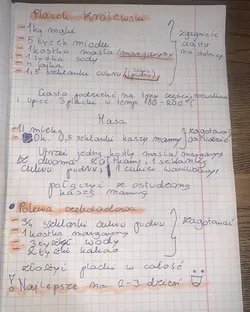 Placek Królewski
1 kg mąki
5 łyżek miodu
1 kostka masła (margaryny)
1 łyżka sody
2 jajka
1,5 szklanki cukru (cukru pudru)
zagnieść ciasto na stolnicy
Ciasto podzielić na trzy części, rozwałkować
i upiec 3 placki w temp. 180-200°C
Masa
1 l mleka
Ok. 0,5 szklanki kaszy manny
zagotować ostudzić
Utrzeć jedną kostkę masła/margaryny
z dwoma żółtkami, 1 szklanką
cukru pudru, 1 cukier waniliowy
połączyć z ostudzoną
kaszą manną
Polewa czekoladowa
3/4 szklanki cukru pudru
1 kostka margaryny
3 łyżki wody
3 łyżki kakao
zagotować
złożyć placki w całość
Najlepsze na 2-3 dzień